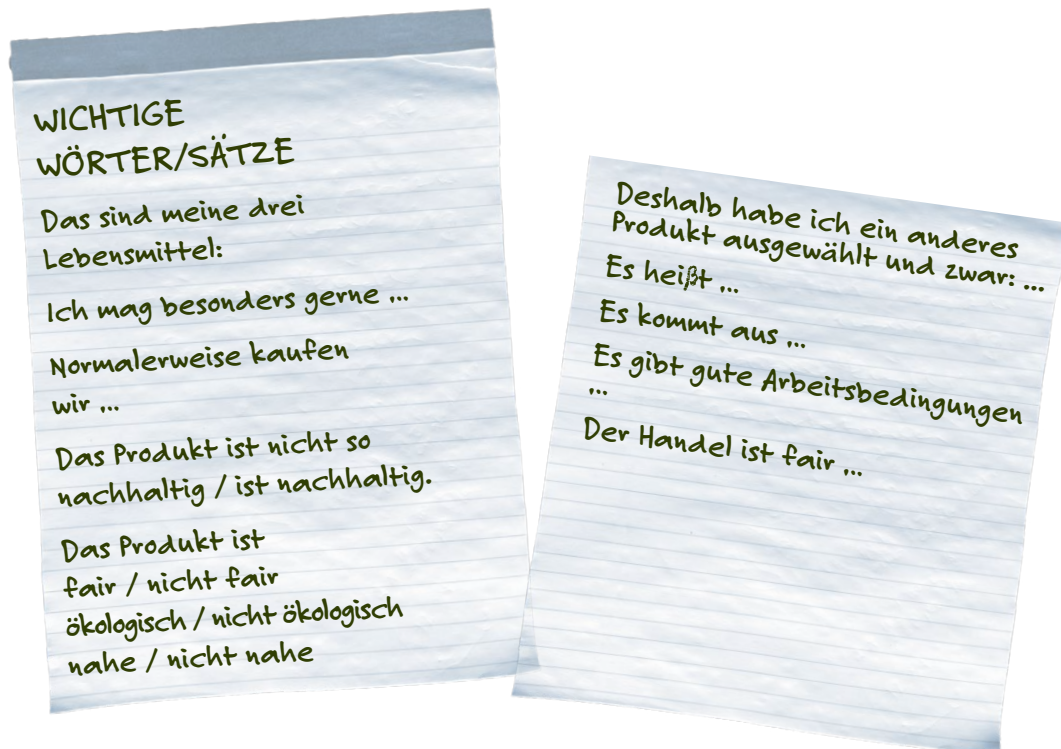 WICHTIGE
WÖRTER/SÄTZE
Das sind meine drei
Lebensmittel:
Ich mag besonders gerne ...
Normalerweise kaufen
wir ...
Das Produkt ist nicht so
nachhaltig / ist nachhaltig.
Das Produkt ist
fair / nicht fair
ökologisch / nicht ökologisch
nahe / nicht nahe
Deshalb habe ich ein anderes
Produkt ausgewählt und zwar: ...
Es heißt ...
Es kommt aus ...
Es gibt gute Arbeitsbedingungen
...
Der Handel ist fair ...